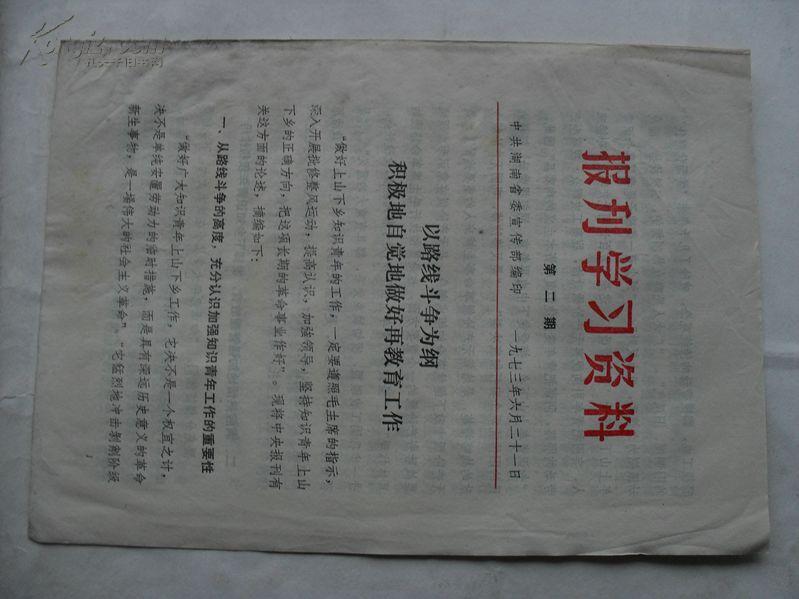 报刊学习资料
第二期
中共湖南省委宣传部编印 一九七三年六月二十一日
以路线斗争为纲
积极地自觉地做好再教育工作
“做好上山下乡知识青年的工作，一定要遵照毛主席的指示，
深入开展批修整风运动，提高认识，加强领导，坚持知识青年上山
下乡的正确方向，把这项长期的革命事业作好”。现将中央报刊有
关这方面的论述，摘编如下：
一、从路线斗争的高度，充分认识加强知识青年工作的重要性
“做好广大知识青年上山下乡工作，它决不是一个权宜之计，
决不是单纯安置劳动力的临时措施，而是具有深远历史意义的革命
新生事物，是一场伟大的社会主义革命”，“它猛烈地冲击剥削阶级